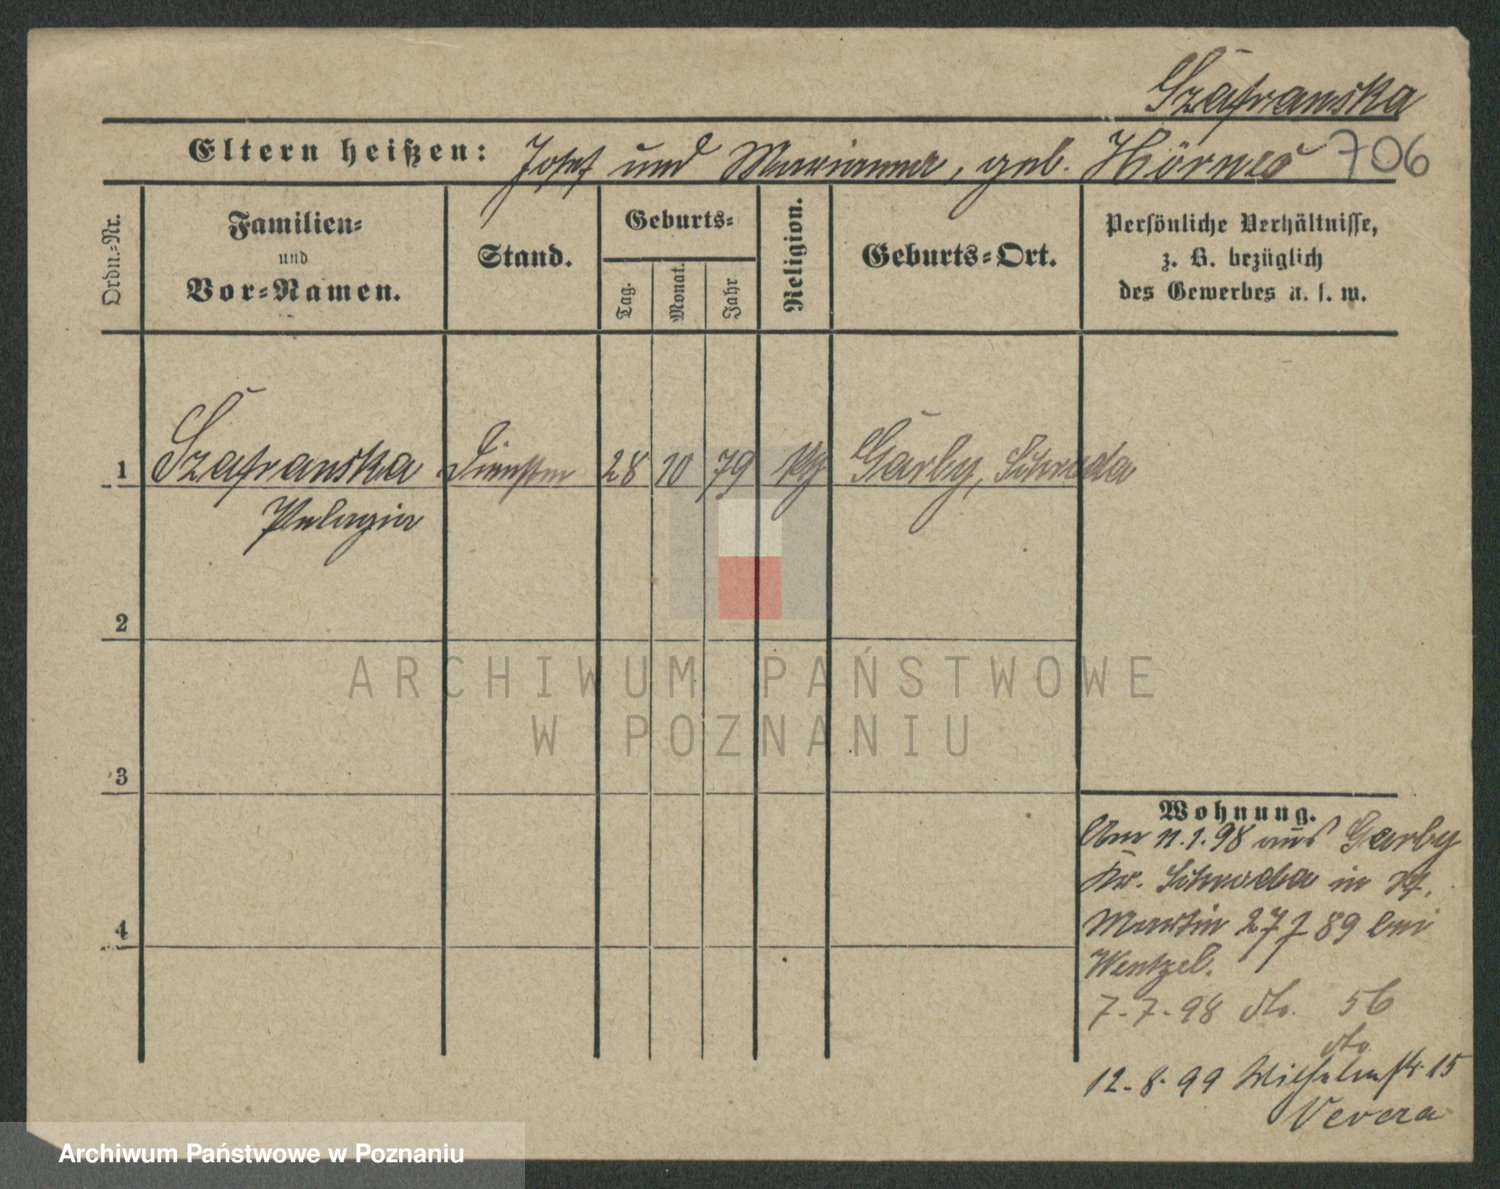 Szafranska
Eltern heißen: Josef und Marianna, geb. Hörnes 706
Ordn.-Nr.
Familien-
und
Vor-Namen.
Stand.
Geburts-
Tag.
Monat.
Jahr
Religion.
Geburts-Ort.
Persönliche Verhältnisse,
z. B. bezüglich
des Gewerbes u. s. w.
1 Szafranska 28 10 79 Garby, Schroda
Pelagia
2
ARCHIWUM PAŃSTWOWE
W POZNANIU
3
Wohnung.
11.1.98 aus Garby
Kr. Schroda in St.
4
Martin 27 89 bei
Wentzel.
7.-7.-98 dto. 56
dto.
12.-8.99 Wilhelmstr. 15
Vevera
Archiwum Państwowe w Poznaniu